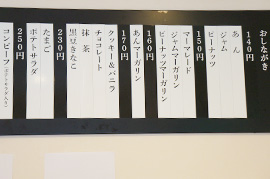 おしながき
140円
あん
ジャム
ピーナッツ
150円
マーマレード
ジャムマーガリン
ピーナッツマーガリン
160円
あんマーガリン
170円
クッキー&バニラ
チョコレート
抹茶
黒豆きなこ
230円
たまご
ポテトサラダ
250円
コンビーフ